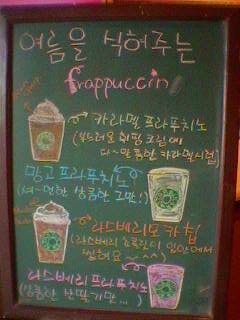 여름을 식혀주는
frappuccino
카라멜 프라푸치노
(부드러운 휘핑크림에
다~만 달콤한 카라멜시럽)
망고 프라푸치노
(시~원한 상큼한 그맛!)
라즈베리모카칩
(라즈베리 초콜릿이 입안에서
라즈베리 프라푸치노
(상큼한 산딸기맛...)